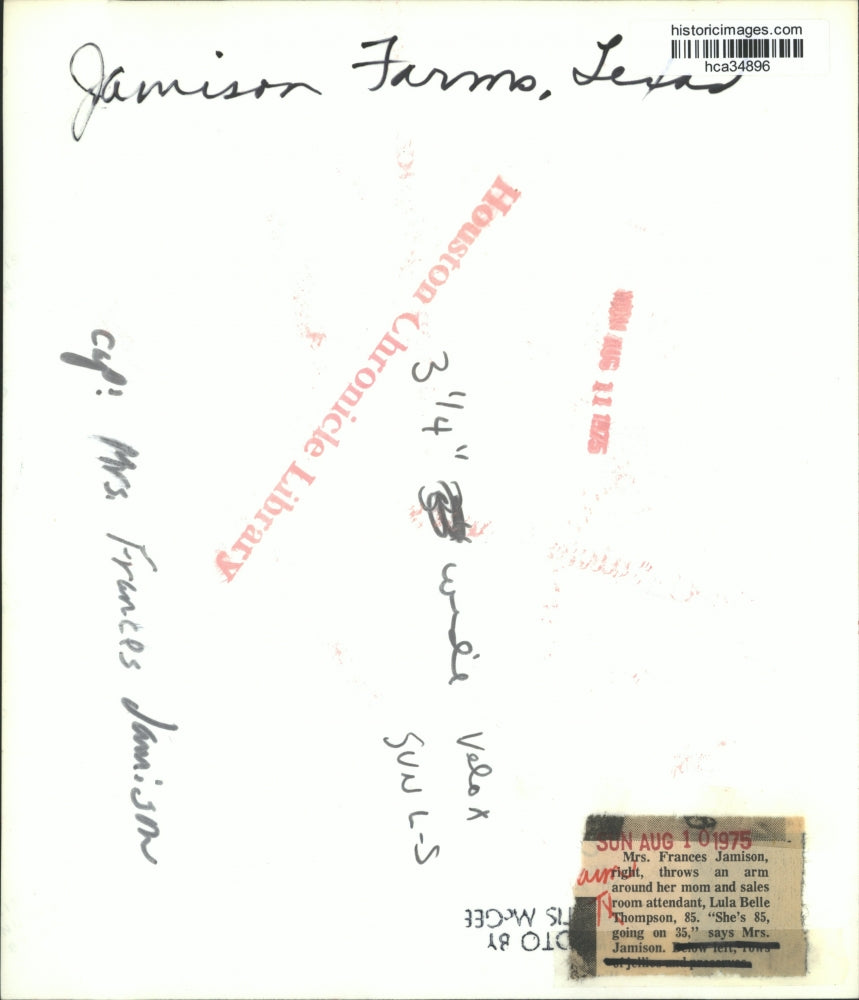 historicimages.com
hca34896
Jamison Farms, Texas
Houston Chronicle Library
MON AUG 11 1975
cap: Mrs. Frances Jamison
3 1/4" wide
Velox
SUN L-S
SUN AUG 10 1975
Mrs. Frances Jamison,
right, throws an arm
around her mom and sales
room attendant, Lula Belle
Thompson, 85. “She's 85,
going on 35,” says Mrs.
Jamison. Below left, rows
of jellies and preserves.
OTO BY
TIS McGEE